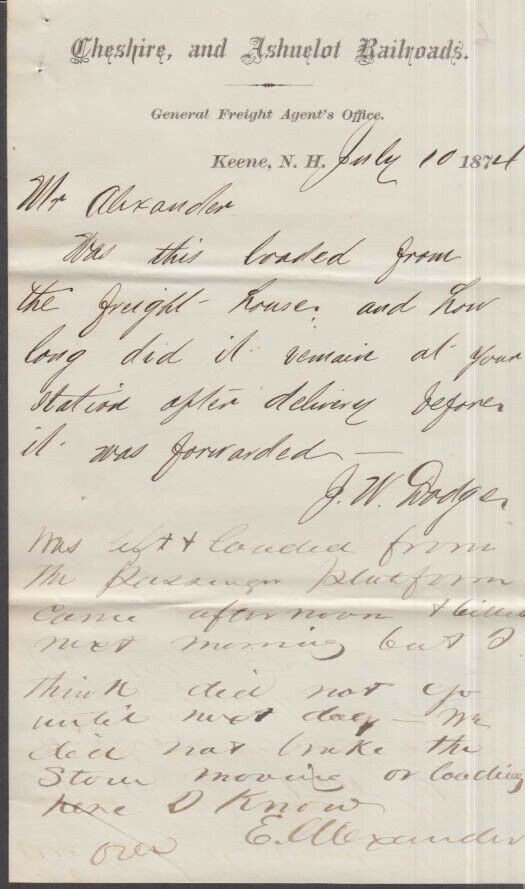 Cheshire, and Ashuelot Railroads.
General Freight Agent's Office.
Keene, N. H. July 10 1874
Mr Alexander
Was this loaded from
the freight house and how
long did it remain at your
station after delivery before
it was forwarded —
J. W. Dodge
Was left & loaded from
the passenger platform
came afternoon & billed
next morning but I
think did not go
until next day – We
did not brake the
Stove moving or loading
here I Know
E. Alexander
over